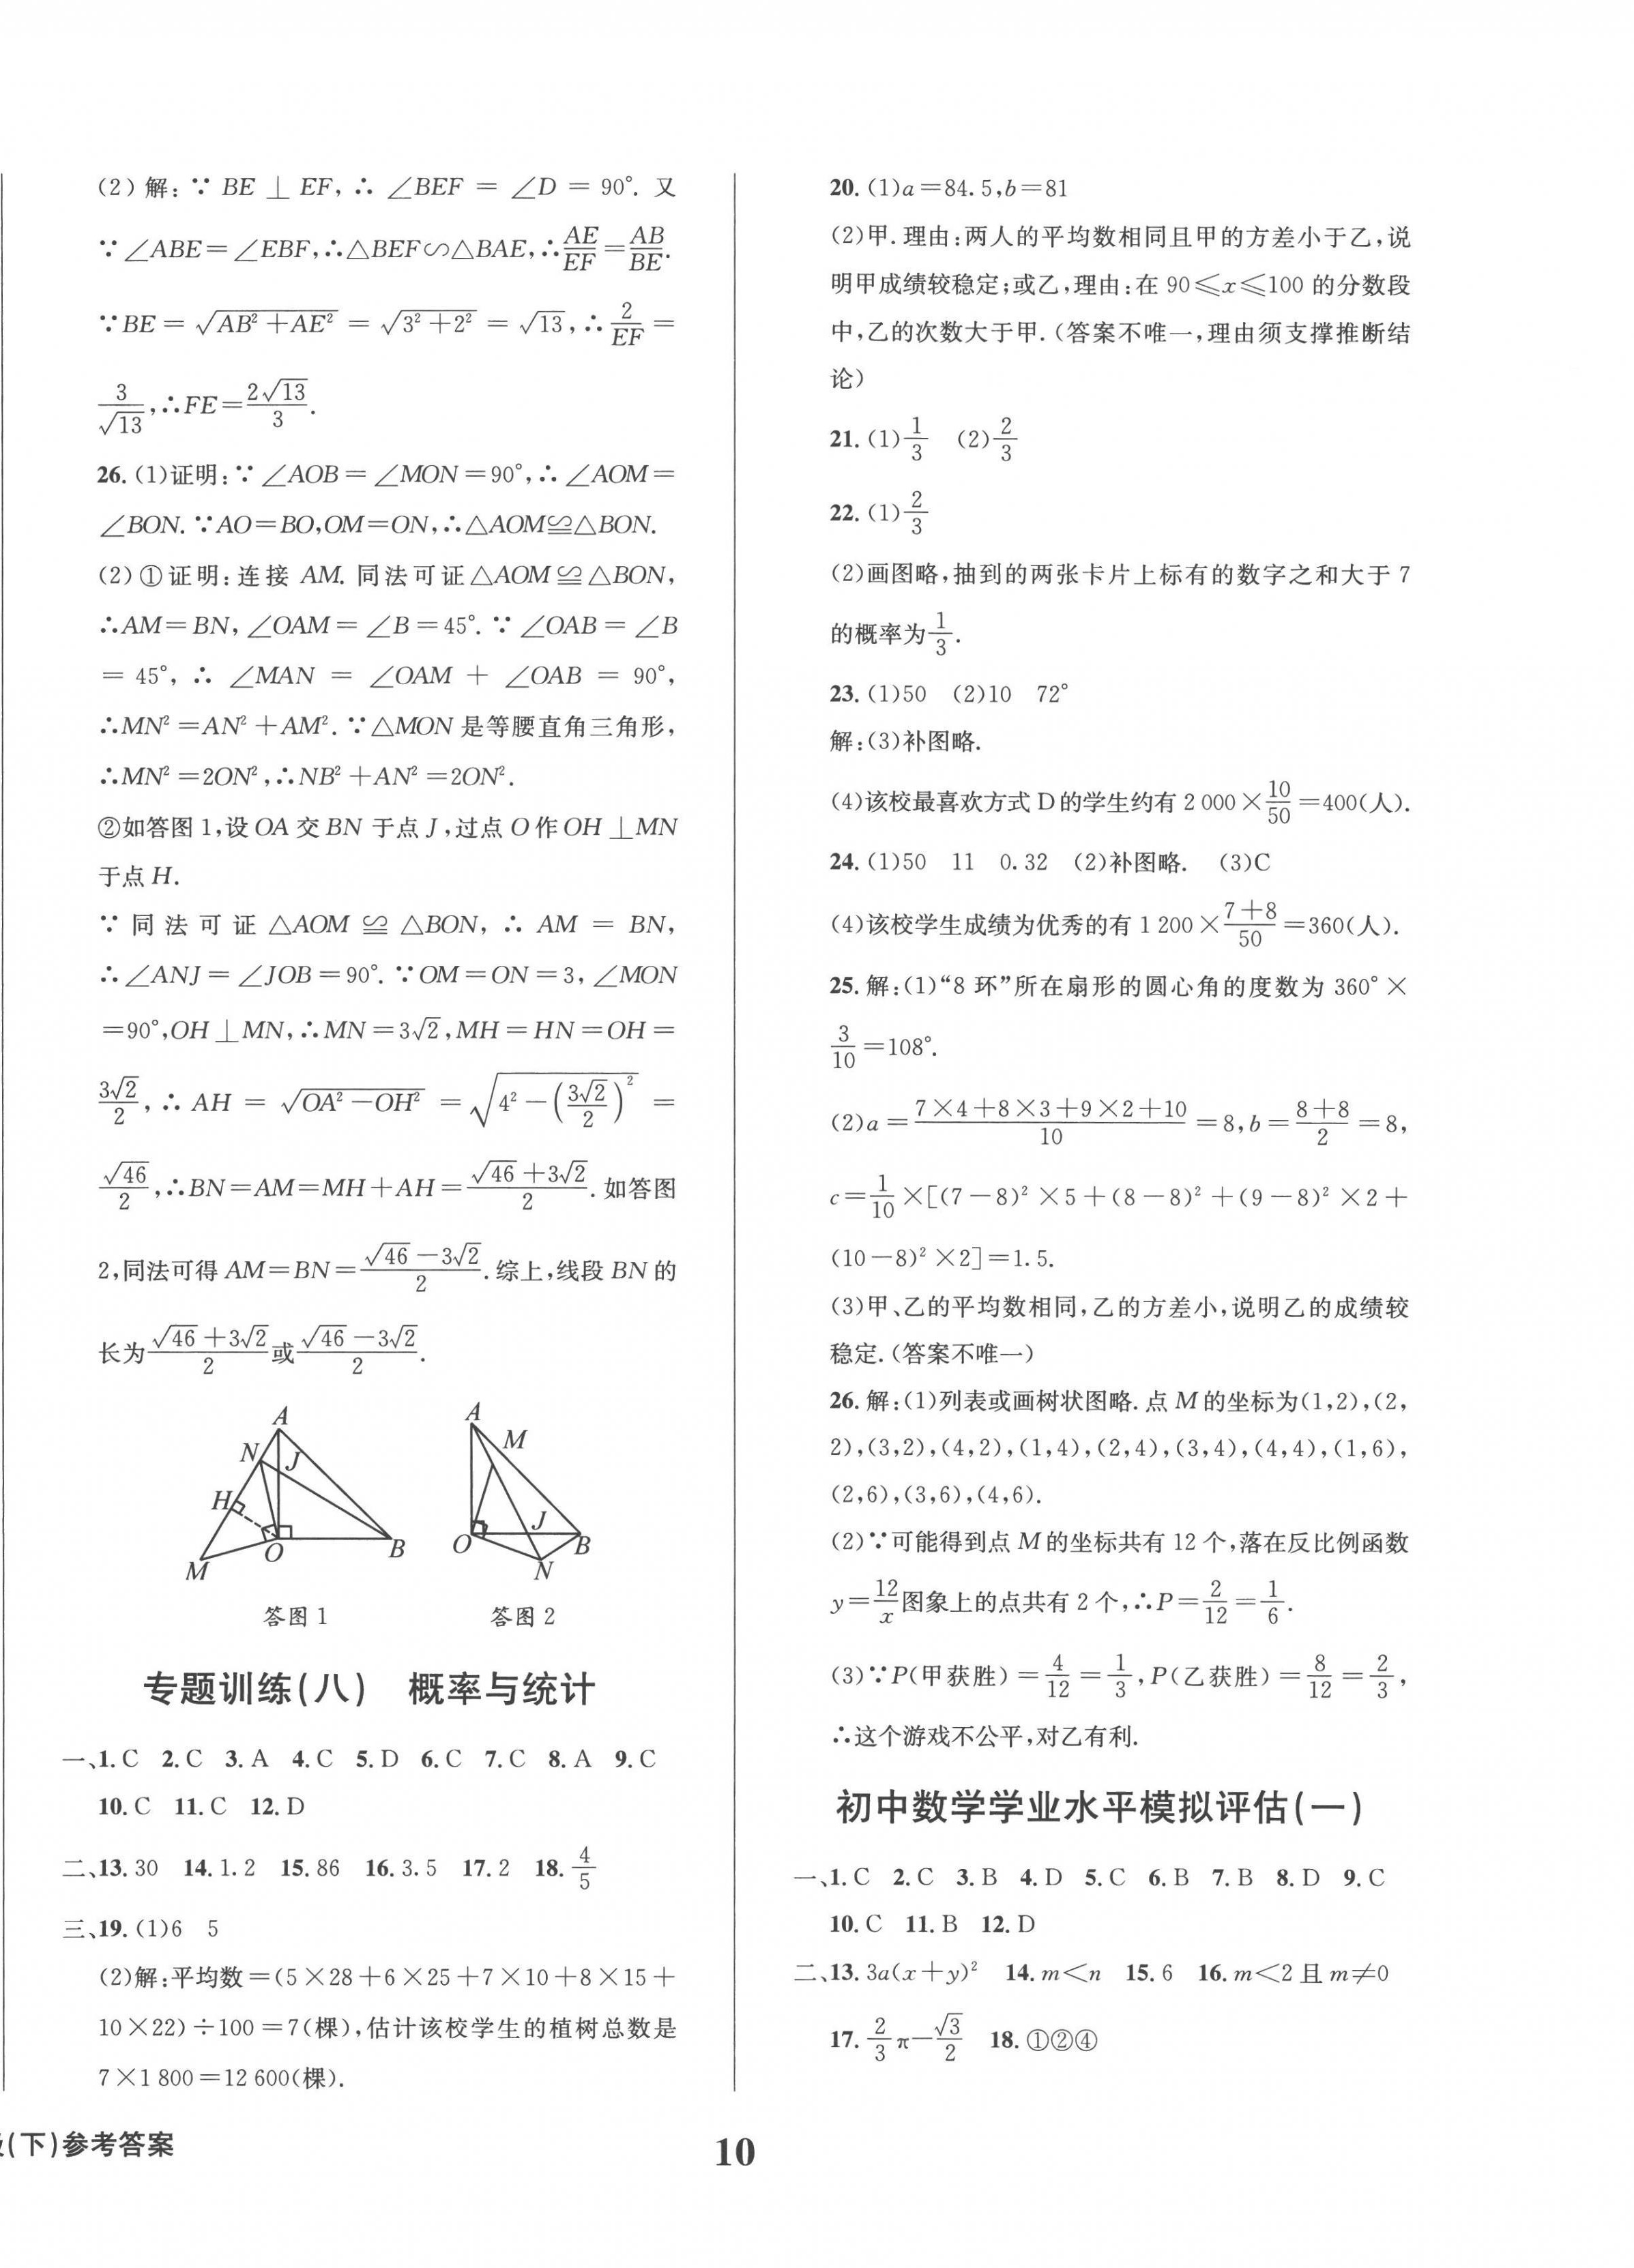 (2)解:∵BE⊥EF,∴∠BEF=∠D=90°.又
∵∠ABE=∠EBF,∴△BEF∽△BAE,∴AE/EF=AB/BE.
∵BE=√(AB²+AE²)=√(3²+2²)=√13,∴2/EF=
3/√13,∴FE=2√13/3.
26.(1)证明:∵∠AOB=∠MON=90°,∴∠AOM=
∠BON.∵AO=BO,OM=ON,∴△AOM≌△BON.
(2)①证明:连接AM.同法可证△AOM≌△BON,
∴AM=BN,∠OAM=∠B=45°.∵∠OAB=∠B
=45°,∴∠MAN=∠OAM+∠OAB=90°,
∴MN²=AN²+AM².∵△MON是等腰直角三角形,
∴MN²=2ON²,∴NB²+AN²=2ON².
②如答图1,设OA交BN于点J,过点O作OH⊥MN
于点H.
∵同法可证△AOM≌△BON,∴AM=BN,
∴∠ANJ=∠JOB=90°.∵OM=ON=3,∠MON
=90°,OH⊥MN,∴MN=3√2,MH=HN=OH=
3√2/2,∴AH=√(OA²-OH²)=√(4²-(3√2/2)²)=
√46/2,∴BN=AM=MH+AH=(√46+3√2)/2.如答图
2,同法可得AM=BN=(√46-3√2)/2.综上,线段BN的
长为(√46+3√2)/2或(√46-3√2)/2.
A
N
J
H
O
B
M
答图1
A
M
J
O
B
N
答图2
专题训练(八) 概率与统计
一、1.C 2.C 3.A 4.C 5.D 6.C 7.C 8.A 9.C
10.C 11.C 12.D
二、13.30 14.1.2 15.86 16.3.5 17.2 18.4/5
三、19.(1)6 5
(2)解:平均数=(5×28+6×25+7×10+8×15+
10×22)÷100=7(棵),估计该校学生的植树总数是
7×1 800=12 600(棵).
20.(1)a=84.5,b=81
(2)甲.理由:两人的平均数相同且甲的方差小于乙,说
明甲成绩较稳定;或乙,理由:在90≤x≤100的分数段
中,乙的次数大于甲.(答案不唯一,理由须支撑推断结
论)
21.(1)1/3 (2)2/3
22.(1)2/3
(2)画图略,抽到的两张卡片上标有的数字之和大于7
的概率为1/3.
23.(1)50 (2)10 72°
解:(3)补图略.
(4)该校最喜欢方式D的学生约有2 000×10/50=400(人).
24.(1)50 11 0.32 (2)补图略. (3)C
(4)该校学生成绩为优秀的有1 200×(7+8)/50=360(人).
25.解:(1)“8环”所在扇形的圆心角的度数为360°×
3/10=108°.
(2)a=(7×4+8×3+9×2+10)/10=8,b=(8+8)/2=8,
c=1/10×[(7-8)²×5+(8-8)²+(9-8)²×2+
(10-8)²×2]=1.5.
(3)甲、乙的平均数相同,乙的方差小,说明乙的成绩较
稳定.(答案不唯一)
26.解:(1)列表或画树状图略.点M的坐标为(1,2),(2,
2),(3,2),(4,2),(1,4),(2,4),(3,4),(4,4),(1,6),
(2,6),(3,6),(4,6).
(2)∵可能得到点M的坐标共有12个,落在反比例函数
y=12/x图象上的点共有2个,∴P=2/12=1/6.
(3)∵P(甲获胜)=4/12=1/3,P(乙获胜)=8/12=2/3,
∴这个游戏不公平,对乙有利.
初中数学学业水平模拟评估(一)
一、1.C 2.C 3.B 4.D 5.C 6.B 7.B 8.D 9.C
10.C 11.B 12.D
二、13.3a(x+y)² 14.m<n 15.6 16.m<2且m≠0
17.2/3π-√3/2 18.①②④
(下)参考答案
10